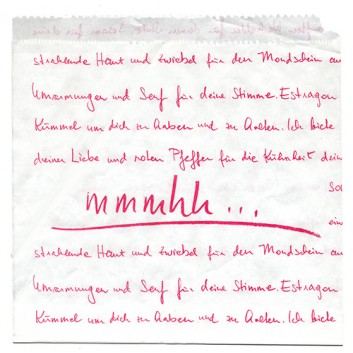 strahlende Haut und Zwiebel für den Mondschein au
Umarmungen und Senf für deine Stimme. Estragon
Kümmel um dich zu haben und zu halten. Ich biete
deiner Liebe und roten Pfeffer für die Kühnheit dein
So
mmmhh...
ein
strahlende Haut und Zwiebel für den Mondschein au
Umarmungen und Senf für deine Stimme. Estragon
Kümmel um dich zu haben und zu halten. Ich biete